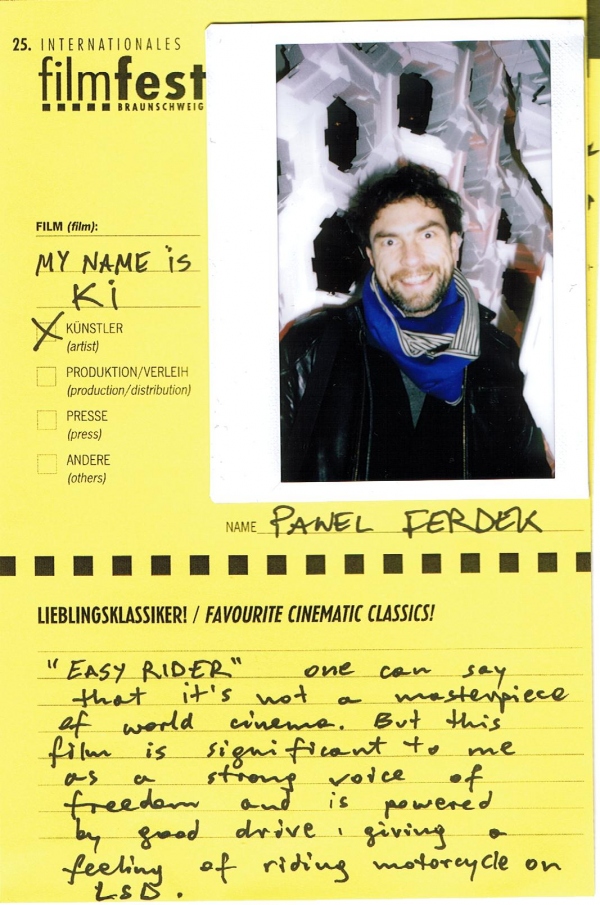 25. INTERNATIONALES
filmfest
BRAUNSCHWEIG
FILM (film):
MY NAME is
Ki
KÜNSTLER
(artist)
PRODUKTION/VERLEIH
(production/distribution)
PRESSE
(press)
ANDERE
(others)
NAME PAWEL FERDEK
LIEBLINGSKLASSIKER! / FAVOURITE CINEMATIC CLASSICS!
"EASY RIDER" one can say
that it's not a masterpiece
of world cinema. But this
film is significant to me
as a strong voice of
freedom and is powered
by good drive, giving a
feeling of riding motorcycle on
LSD.